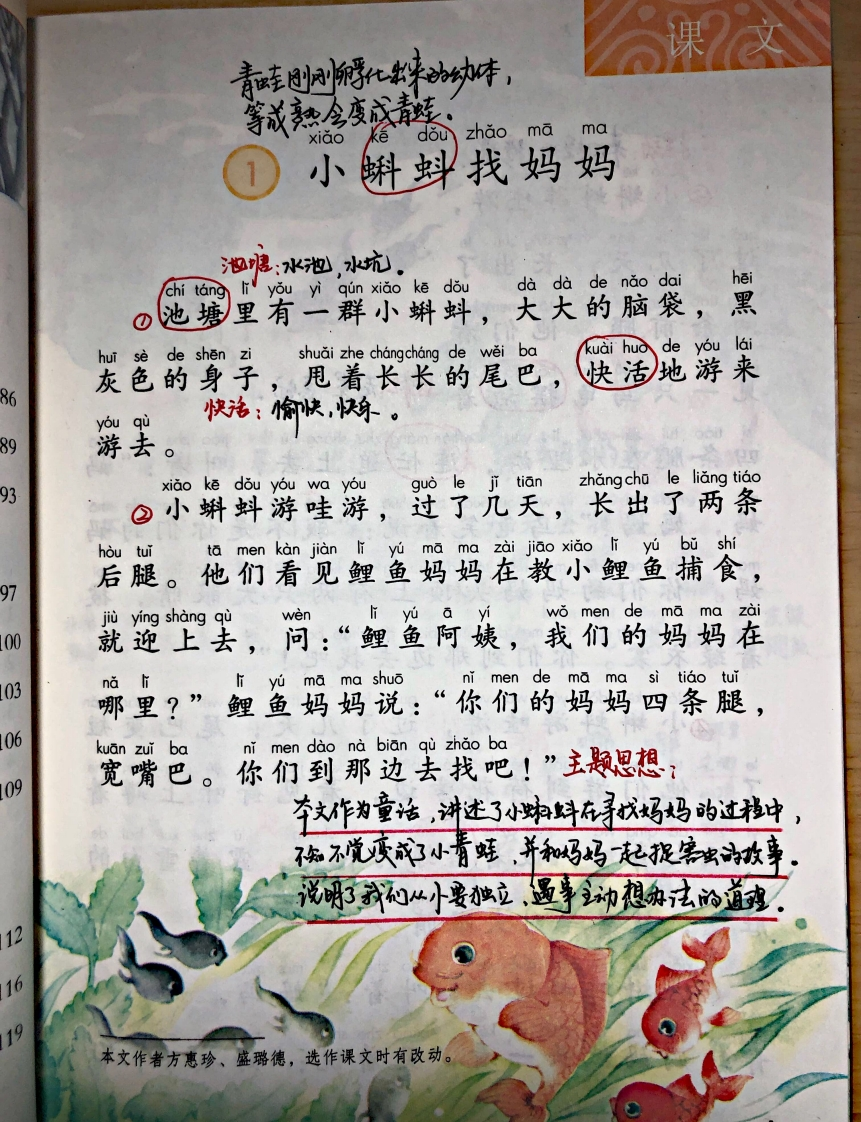 课 文
青蛙刚刚孵化出来的幼体，
等成熟会变成青蛙。
xiǎo kē dǒu zhǎo mā ma
1 小蝌蚪找妈妈
池塘：水池，水坑。
chí táng lǐ yǒu yì qún xiǎo kē dǒu dà dà de nǎo dai hēi
① 池塘里有一群小蝌蚪，大大的脑袋，黑
huī sè de shēn zi shuǎi zhe cháng cháng de wěi ba kuài huo de yóu lái
灰色的身子，甩着长长的尾巴，快活地游来
快活：愉快，快乐。
yóu qù
游去。
xiǎo kē dǒu yóu wa yóu guò le jǐ tiān zhǎng chū le liǎng tiáo
② 小蝌蚪游哇游，过了几天，长出了两条
hòu tuǐ tā men kàn jiàn lǐ yú mā ma zài jiāo xiǎo lǐ yú bǔ shí
后腿。他们看见鲤鱼妈妈在教小鲤鱼捕食，
jiù yíng shàng qù wèn lǐ yú ā yí wǒ men de mā ma zài
就迎上去，问：“鲤鱼阿姨，我们的妈妈在
nǎ lǐ lǐ yú mā ma shuō nǐ men de mā ma sì tiáo tuǐ
哪里？”鲤鱼妈妈说：“你们的妈妈四条腿，
kuān zuǐ ba nǐ men dào nà biān qù zhǎo ba
宽嘴巴。你们到那边去找吧！”
主题思想：
本文作为童话，讲述了小蝌蚪在寻找妈妈的过程中，
不知不觉变成了小青蛙，并和妈妈一起捉害虫的故事。
说明了我们从小要独立、遇事主动想办法的道理。
本文作者方惠珍、盛璐德，选作课文时有改动。
86
89
93
97
100
103
106
109
112
116
119